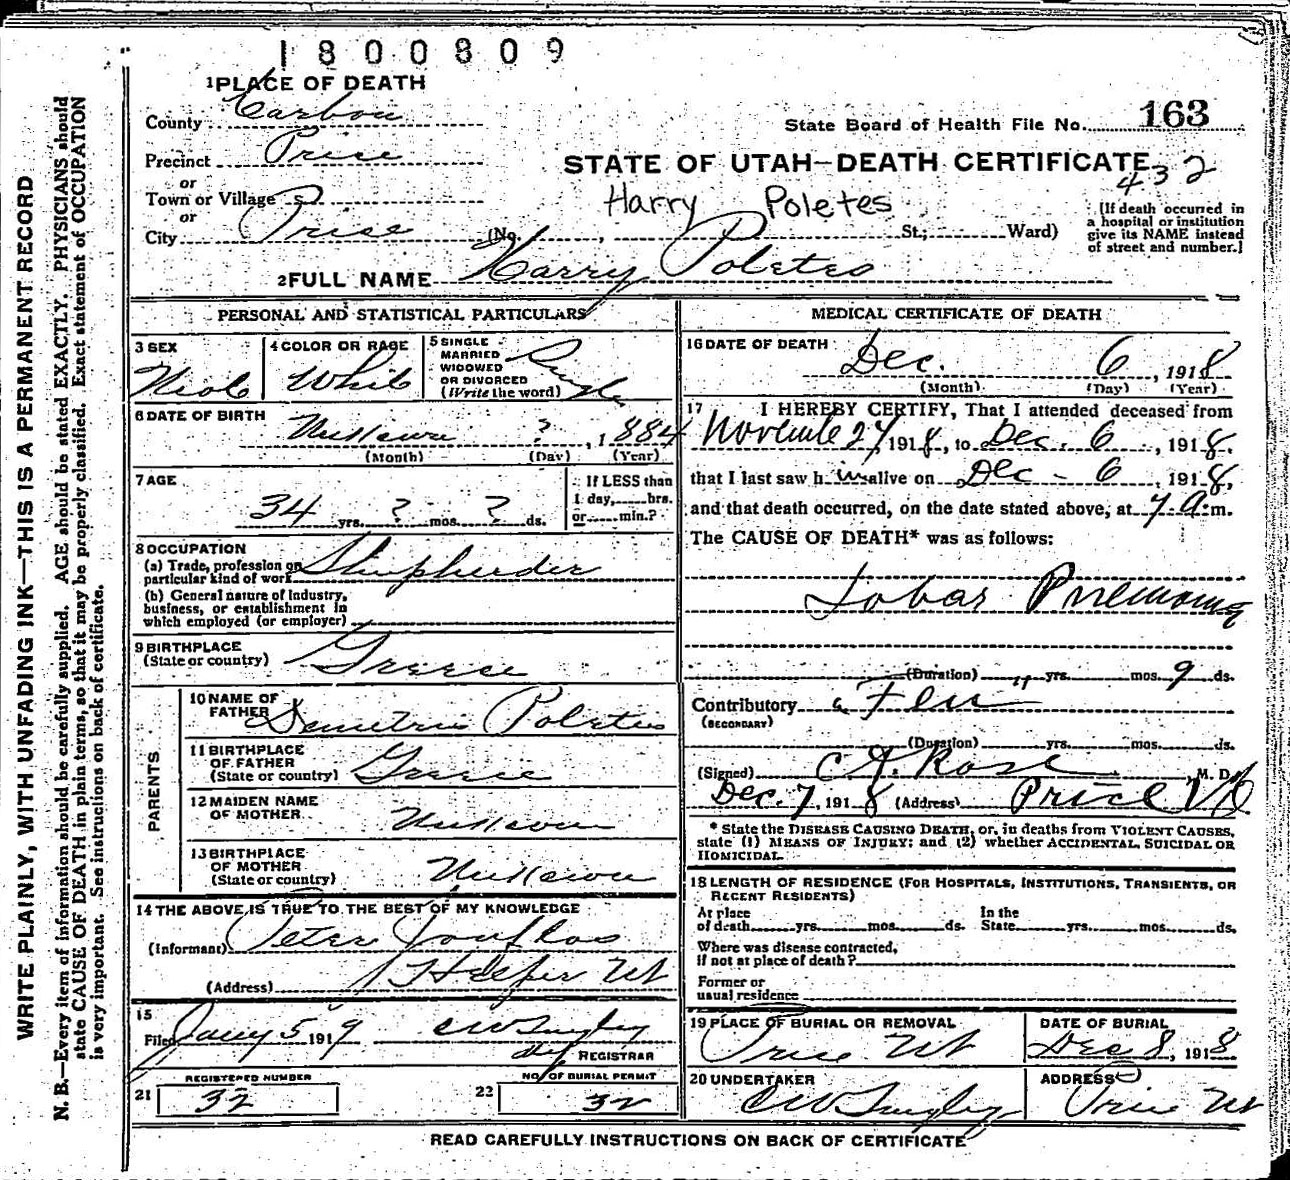 1800809
1 PLACE OF DEATH
County Carbon
Precinct Price
or
Town or Village
or
City Price (No. , St.; Ward)
State Board of Health File No. 163
STATE OF UTAH—DEATH CERTIFICATE
432
Harry Poletes
[If death occurred in
a hospital or institution
give its NAME instead
of street and number.]
2 FULL NAME Harry Poletes
WRITE PLAINLY, WITH UNFADING INK—THIS IS A PERMANENT RECORD
N. B.—Every item of information should be carefully supplied. AGE should be stated EXACTLY. PHYSICIANS should
state CAUSE OF DEATH in plain terms, so that it may be properly classified. Exact statement of OCCUPATION
is very important. See instructions on back of certificate.
PERSONAL AND STATISTICAL PARTICULARS
3 SEX
4 COLOR OR RACE
White
5 SINGLE
MARRIED
WIDOWED
OR DIVORCED
(Write the word)
Single
6 DATE OF BIRTH
? , 1884
(Month) (Day) (Year)
7 AGE
34 yrs. ? mos. ? ds.
If LESS than
1 day, hrs.
or min.?
8 OCCUPATION
(a) Trade, profession or
particular kind of work
(b) General nature of industry,
business, or establishment in
which employed (or employer)
9 BIRTHPLACE
(State or country) Greece
PARENTS
10 NAME OF
FATHER Poletes
11 BIRTHPLACE
OF FATHER
(State or country) Greece
12 MAIDEN NAME
OF MOTHER
13 BIRTHPLACE
OF MOTHER
(State or country)
14 THE ABOVE IS TRUE TO THE BEST OF MY KNOWLEDGE
(Informant) Peter
(Address) Helper Ut
15
Filed Jany 5 1919
REGISTRAR
REGISTERED NUMBER
21 32
NO. OF BURIAL PERMIT
22 32
MEDICAL CERTIFICATE OF DEATH
16 DATE OF DEATH
Dec. 6 , 1918
(Month) (Day) (Year)
17 I HEREBY CERTIFY, That I attended deceased from
27, 1918, to Dec. 6 , 1918,
that I last saw him alive on Dec - 6 , 1918,
and that death occurred, on the date stated above, at 7 A. m.
The CAUSE OF DEATH* was as follows:
Lobar
(Duration) yrs. mos. 9 ds.
Contributory "Flu"
(SECONDARY)
(Duration) yrs. mos. ds.
(Signed) , M. D.
Dec. 7, 1918 (Address) Price Ut
* State the DISEASE CAUSING DEATH, or, in deaths from VIOLENT CAUSES,
state (1) MEANS OF INJURY; and (2) whether ACCIDENTAL, SUICIDAL OR
HOMICIDAL.
18 LENGTH OF RESIDENCE (FOR HOSPITALS, INSTITUTIONS, TRANSIENTS, OR
RECENT RESIDENTS)
At place
of death yrs. mos. ds. In the
State yrs. mos. ds.
Where was disease contracted,
if not at place of death?
Former or
usual residence
19 PLACE OF BURIAL OR REMOVAL
Price Ut
DATE OF BURIAL
Dec 8, 1918
20 UNDERTAKER
ADDRESS
Price Ut
READ CAREFULLY INSTRUCTIONS ON BACK OF CERTIFICATE